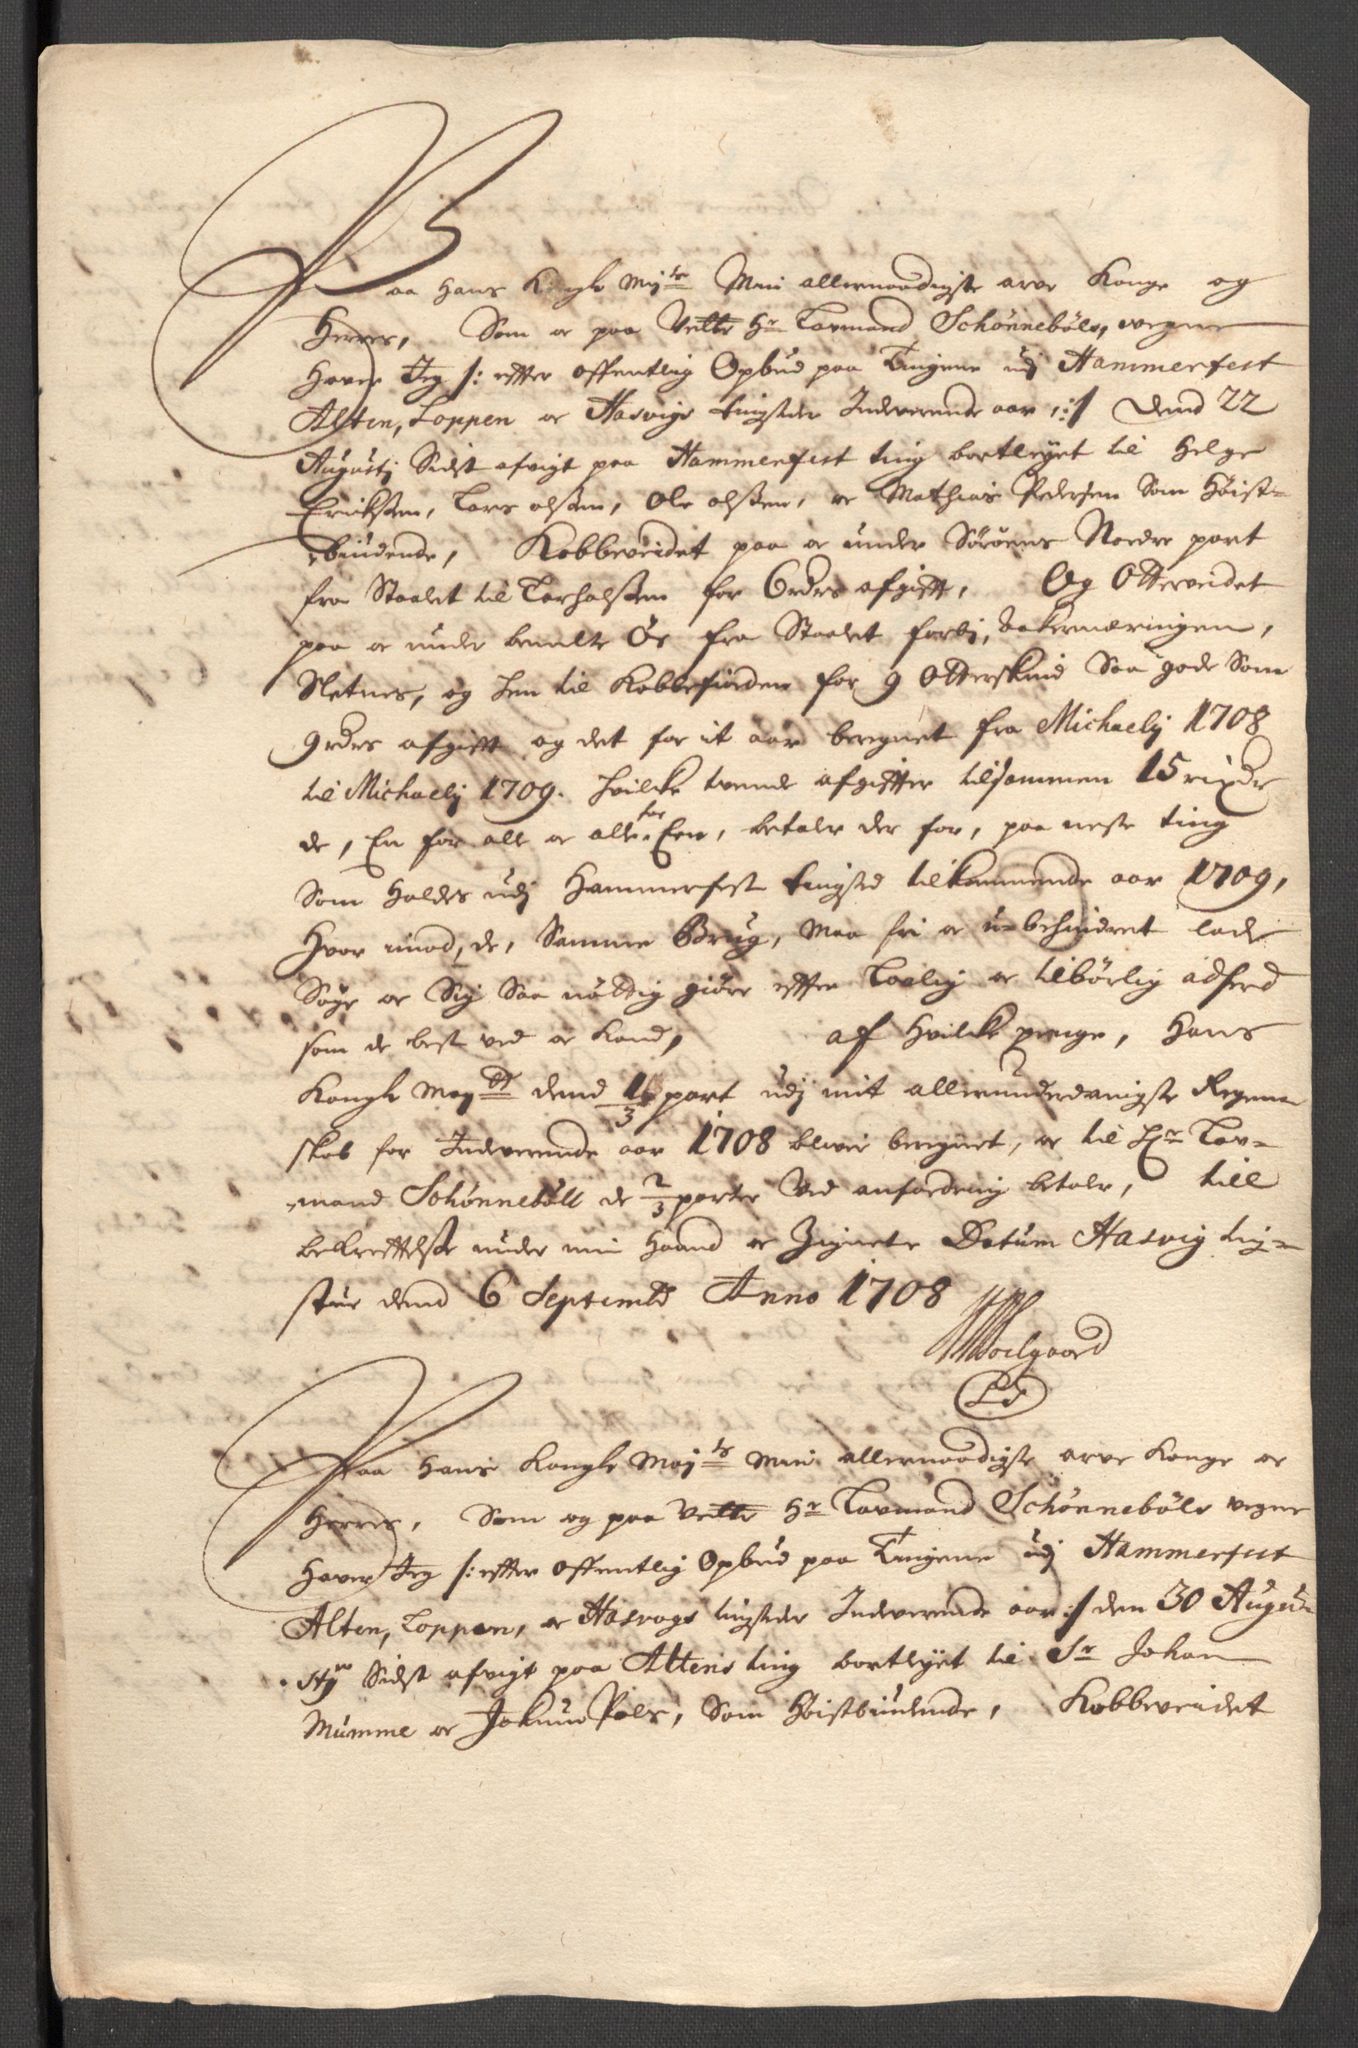 Paa Hans Kongl Mayts Min allernaadigste arve Konge og
Herres, Som oc paa Velbr Hr Lavmand Schønnebøls, vegne
Haver Jeg /: efter offentlig Opbud paa Tingene udj Hammerfest
Alten, Loppen oc Hasvigs tingsteder Indeverende aar :/ Dend 22
Augustj Sidst afvigt paa Hammerfest ting bortleyet til Helge
Eriksen, Lars olsen, Ole olsen, oc Mathias Pedersen Som Høist-
biudende, Kobbeveidet paa oc under Sørøens Nordre part
fra Staalet til Tarhalsen for 6 rdrs afgift, Og Otterveidet
paa oc under bemelte Øe fra Staalet forbj, bakernæringen,
Sletnes, og hen til Kobbefiorden for 9 Otterskind Saa gode Som
9 rdrs afgift og det for it aar beregnet fra Michaelj 1708
til Michaelj 1709. hvilcke tvende afgifter tilsammen 15 rixdr
de, En for alle oc alle for Een, betaler der for, paa neste ting
Som Holdes udj Hammerfest tingsted tilkommende aar 1709,
Hvor imod, de, Samme Brug, maa fri oc u-behindret lade
Søge oc Sig Saa nøttig giøre efter Lovlig oc tilbørlig adferd
som de best ved oc Kand, af Hvilcke penge, Hans
Kongl Maytt dend 1/3 part udj mit allerunderdanigste Regen-
skab for Indeverende aar 1708 bliver beregnet, oc til Hr Lav-
mand Schønnebøll de 2/3 parter Ved anfordring betale, till
bekreftelse under min Haand oc Zignete Datum Hasvig ting-
stue dend 6 Septembr Anno 1708
Soelgaard
LS
Paa Hans Kongl Mayts Min allernaadigste arve Konge oc
Herres, Som og paa Velbr Hr Lavmand Schønnebøls vegne
Haver Jeg /: efter offentlig Opbud paa Tingene udj Hammerfest
Alten, Loppen, oc Hasvogs tingsteder Indeverende aar :/ den 30 Augu-
stj Sidst afvigt paa Altens ting bortleyet til Sr Johan
Mumme oc Jokum Pals, Som Høistbiudende, Kobbeveidet